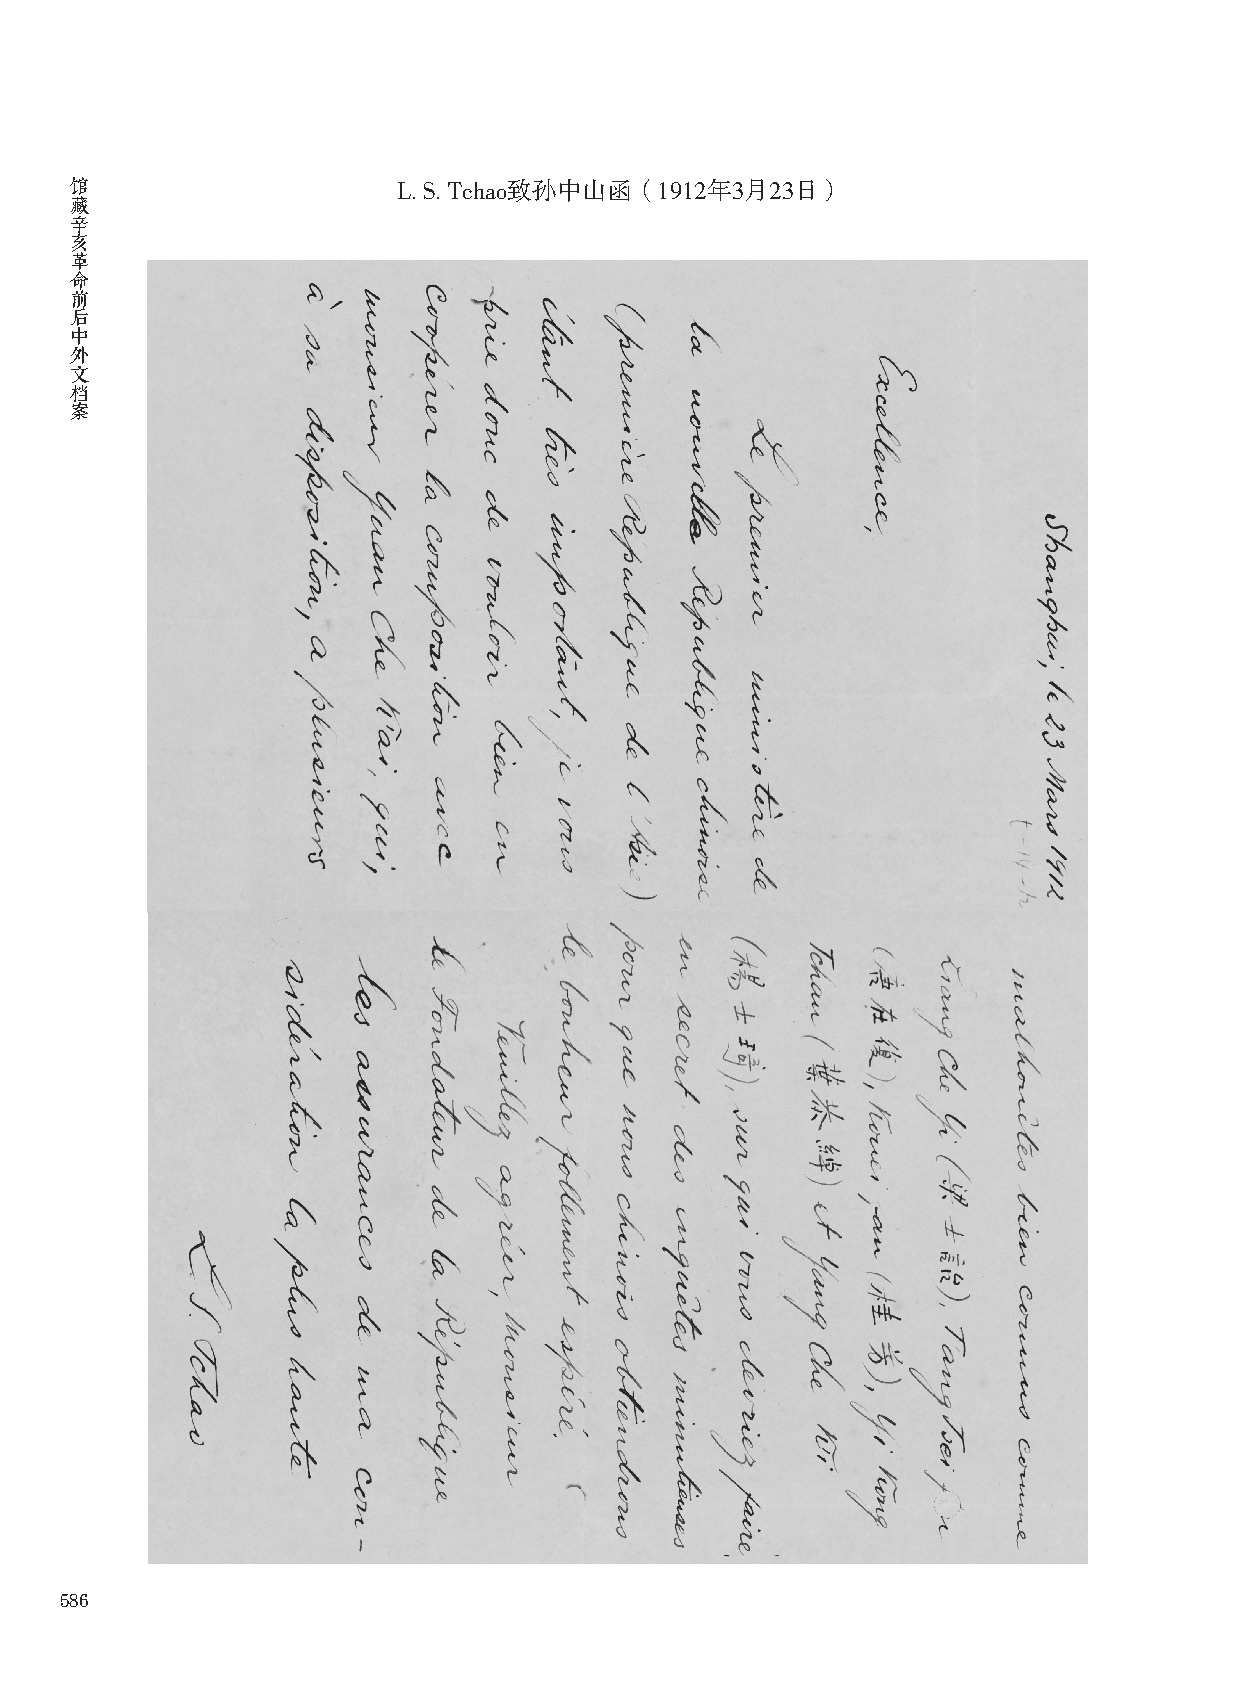 馆藏辛亥革命前后中外文档案
L. S. Tchao致孙中山函（1912年3月23日）
Shanghai, le 23 Mars 1912
Excellence,
Le premier ministère de
la nouvelle République chinoise
(première République de l'Asie)
étant très important, je vous
prie donc de vouloir bien en
coopérer la composition avec
monsieur Yuan Che K'ai, qui,
à sa disposition, a plusieurs
malhonêtes bien connus comme
Liang Che Yi (梁士詒), Tang Tsei
(唐在復), Kouei-an (桂芳), Yi Kong
Tchau (葉恭綽) et Yang Che Ki
(楊士琦), sur qui vous devriez faire
en secret des inquêtes minutieuses
pour que nous chinois obtiendrons
le bonheur follement espéré.
Veuillez agréer, Monsieur
le Fondateur de la République
les assurances de ma con-
sidération la plus haute
L. S. Tchao
586